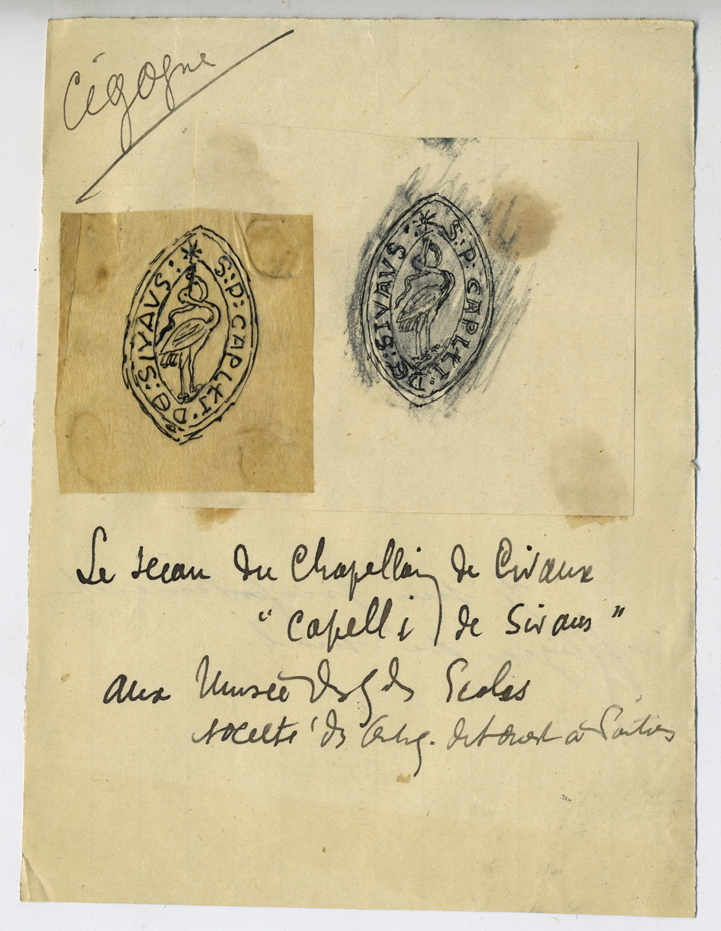 Cigogne
S:P:CAPLLI·DE:SIVAVS:
S:P:CAPLLI·DE:SIVAVS
Le sceau du Chapellain de Civaux
"Capelli de Sivaus"
aux Musée des
société des Antiq. de l'Ouest à Poitiers